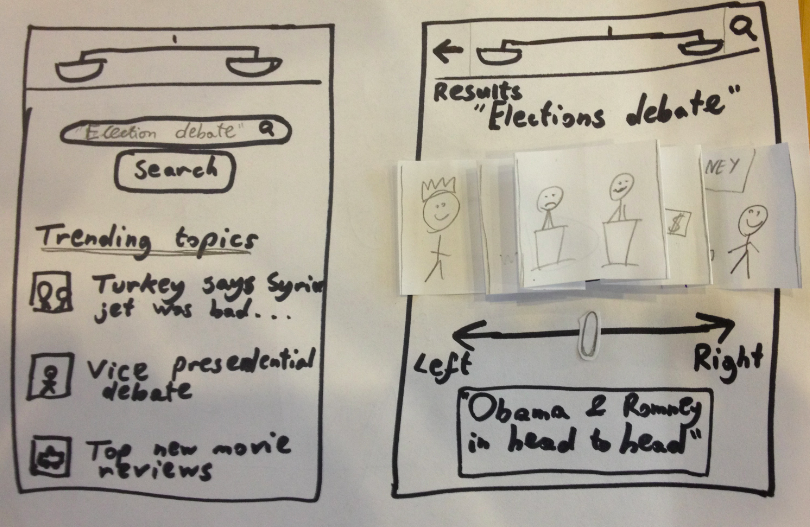 "Election debate"
Search
Trending topics
Turkey says Syrian
jet was bad...
Vice presedential
debate
Top new movie
reviews
Results
"Elections debate"
$
NEY
Left
Right
"Obama & Romney
in head to head"